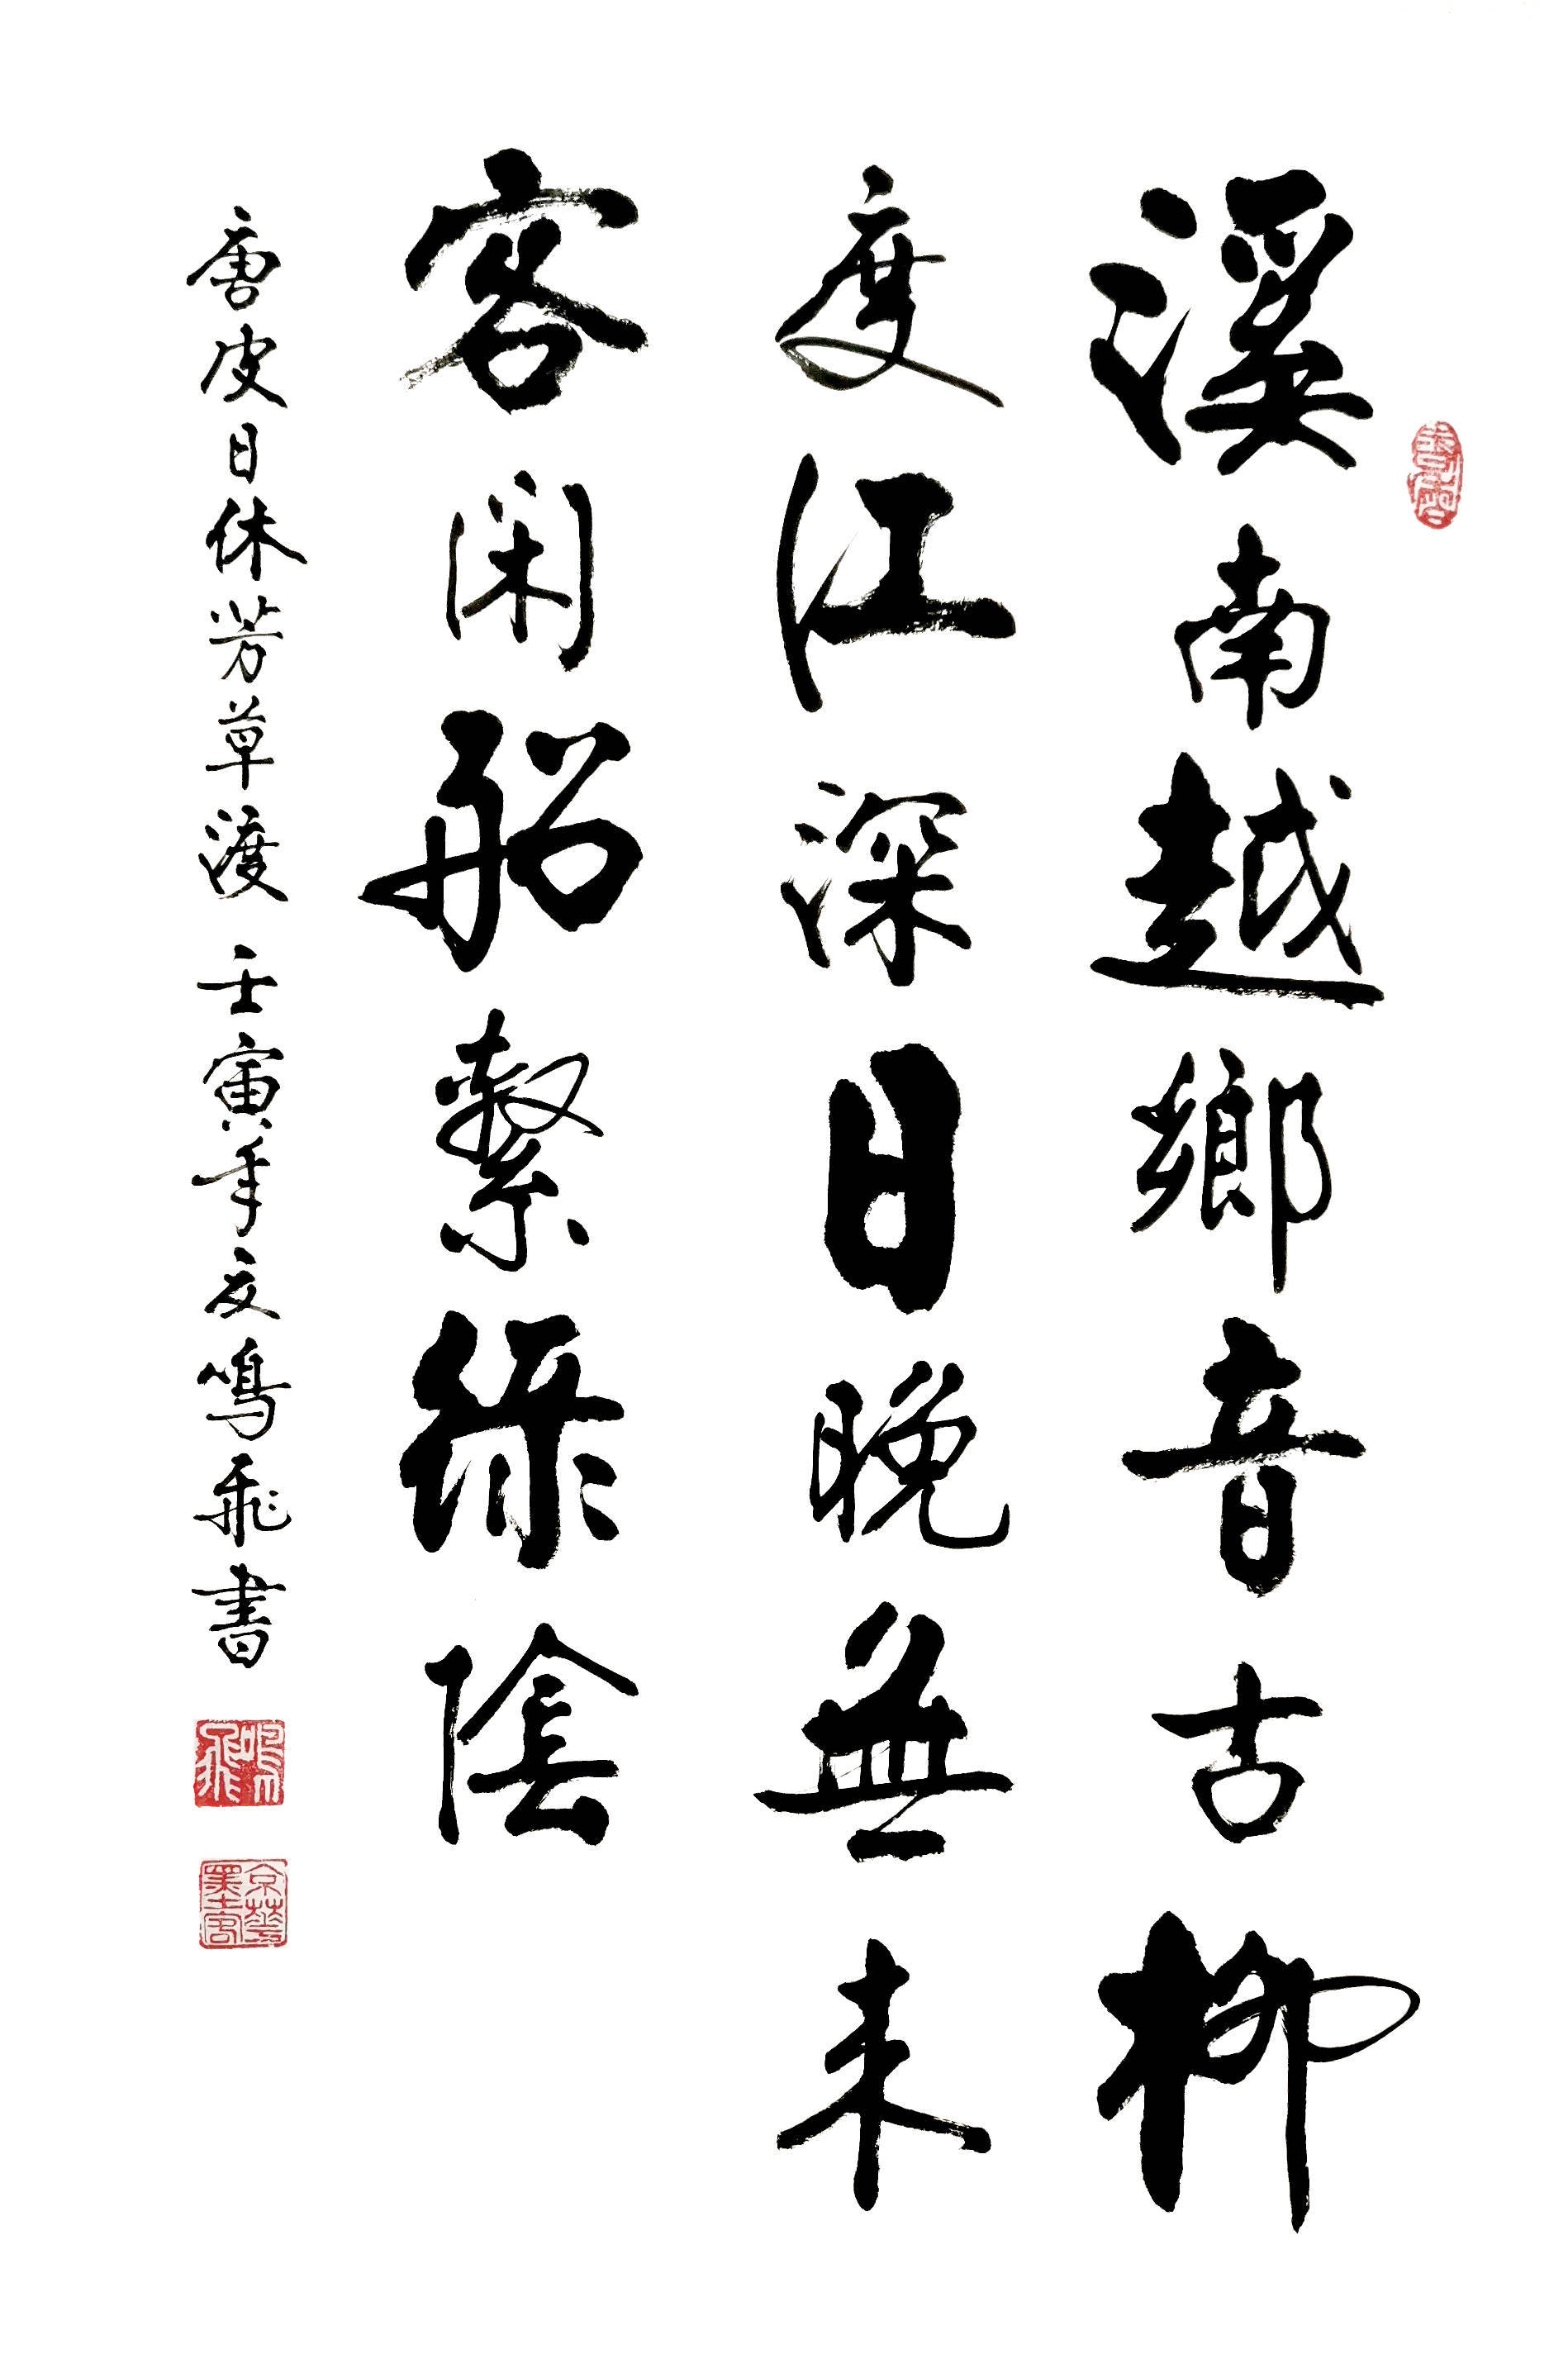 溪南越鄉音古柳
度江深日晚無来
客闲船繫綠陰
唐皮日休芳草渡 壬寅年夏鳴飛書
鳴飛
京華墨客